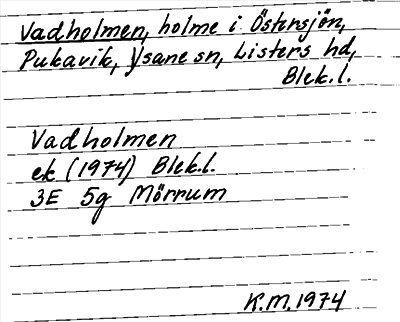 Vadholmen, holme i Östersjön,
Pukavik, Ysane sn, Listers hd,
Blek.l.
Vadholmen
ek (1974) Blek.l.
3E 5g Mörrum
K.M. 1974